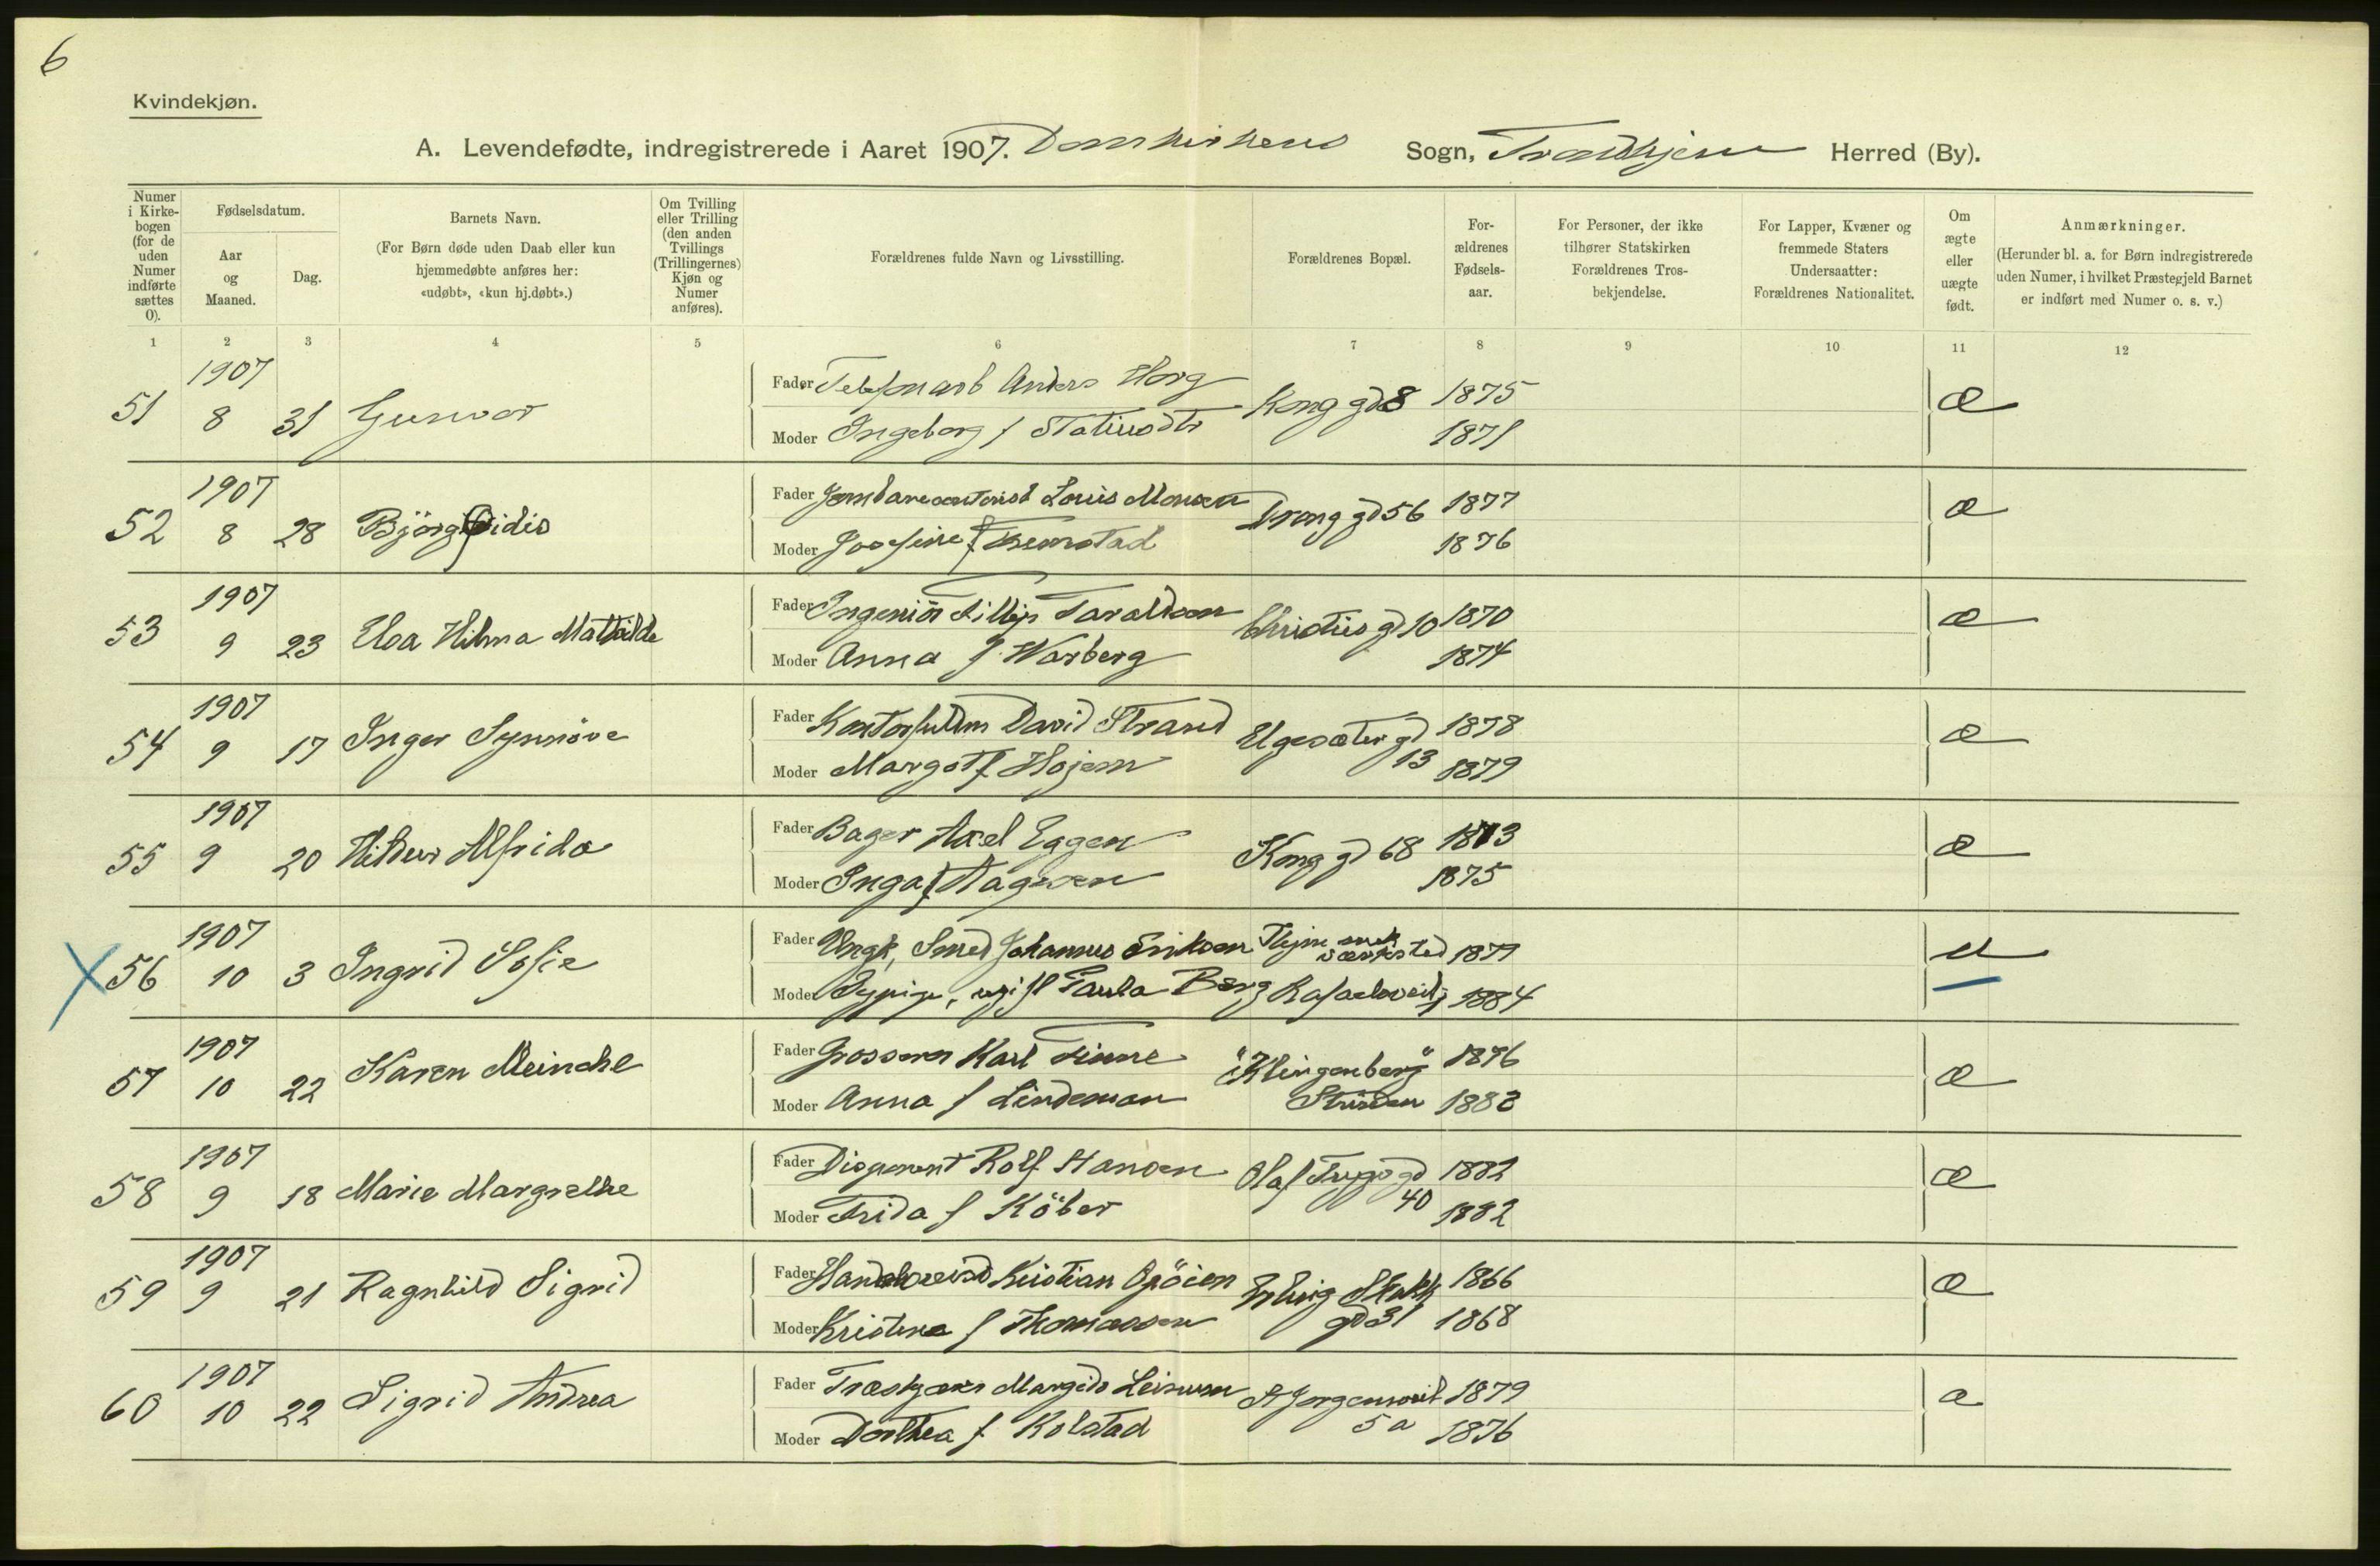 6
Kvindekjøn.
A. Levendefødte, indregistrerede i Aaret 1907. Domkirkens Sogn, Trondhjem Herred (By).
Numer i Kirkebogen (for de uden Numer indførte sættes 0).
Fødselsdatum.
Aar og Maaned.
Dag.
Barnets Navn.
(For Børn døde uden Daab eller kun hjemmedøbte anføres her: «udøbt», «kun hj.døbt».)
Om Tvilling eller Trilling (den anden Tvillings (Trillingernes) Kjøn og Numer anføres).
Forældrenes fulde Navn og Livsstilling.
Forældrenes Bopæl.
Forældrenes Fødselsaar.
For Personer, der ikke tilhører Statskirken Forældrenes Trosbekjendelse.
For Lapper, Kvæner og fremmede Staters Undersaatter: Forældrenes Nationalitet.
Om ægte eller uægte født.
Anmærkninger.
(Herunder bl. a. for Børn indregistrerede uden Numer, i hvilket Præstegjeld Barnet er indført med Numer o. s. v.)
1 2 3 4 5 6 7 8 9 10 11 12
51 1907 8 31 Gunvor
Fader Telefonarb Anders Horg Kong gd 8 1875 æ
Moder Ingeborg f Statinsdtr 1871
52 1907 8 28 Björg Fidis
Fader Louis Monsen Drong gd 56 1877 æ
Moder Josefine f 1876
53 1907 9 23 Elsa Hilma Mathilde
Fader Ingeniör Fillip Taraldsen Christies gd 10 1870 æ
Moder Anna f. Warberg 1874
54 1907 9 17 Inger Synnöve
Fader Kontorfuldm David Strand Elgesæter gd 13 1878 æ
Moder Margot f Hojem 1879
55 1907 9 20 Hildur Alfrida
Fader Bager Axel Eggen Kong gd 68 1873 æ
Moder Inga f Aagesen 1875
56 1907 10 3 Ingrid Sofie
Fader Ungk, Smed Johannes Eriksen Thjme mek værksted 1877 u
Moder Sypige, ugift Paula Berg Rafaelsveit 1 1884
57 1907 10 22 Karen Meincke
Fader Grosserer Karl Finne "Klingenberg" Strinden 1876 æ
Moder Anna f Lindeman 1883
58 1907 9 18 Marie Margrethe
Fader Disponent Rolf Hansen Olaf Trygs gd 40 1882 æ
Moder Frida f Köber 1882
59 1907 9 21 Ragnhild Sigrid
Fader Handelsreisd Kristian Opöien Erling Skakk gd 31 1866 æ
Moder Kristine f Thomassen 1868
60 1907 10 22 Sigrid Andrea
Fader Træskjærer Margido Leirum St Jørgensveit 5 a 1879 æ
Moder Dorthea f Kolstad 1876